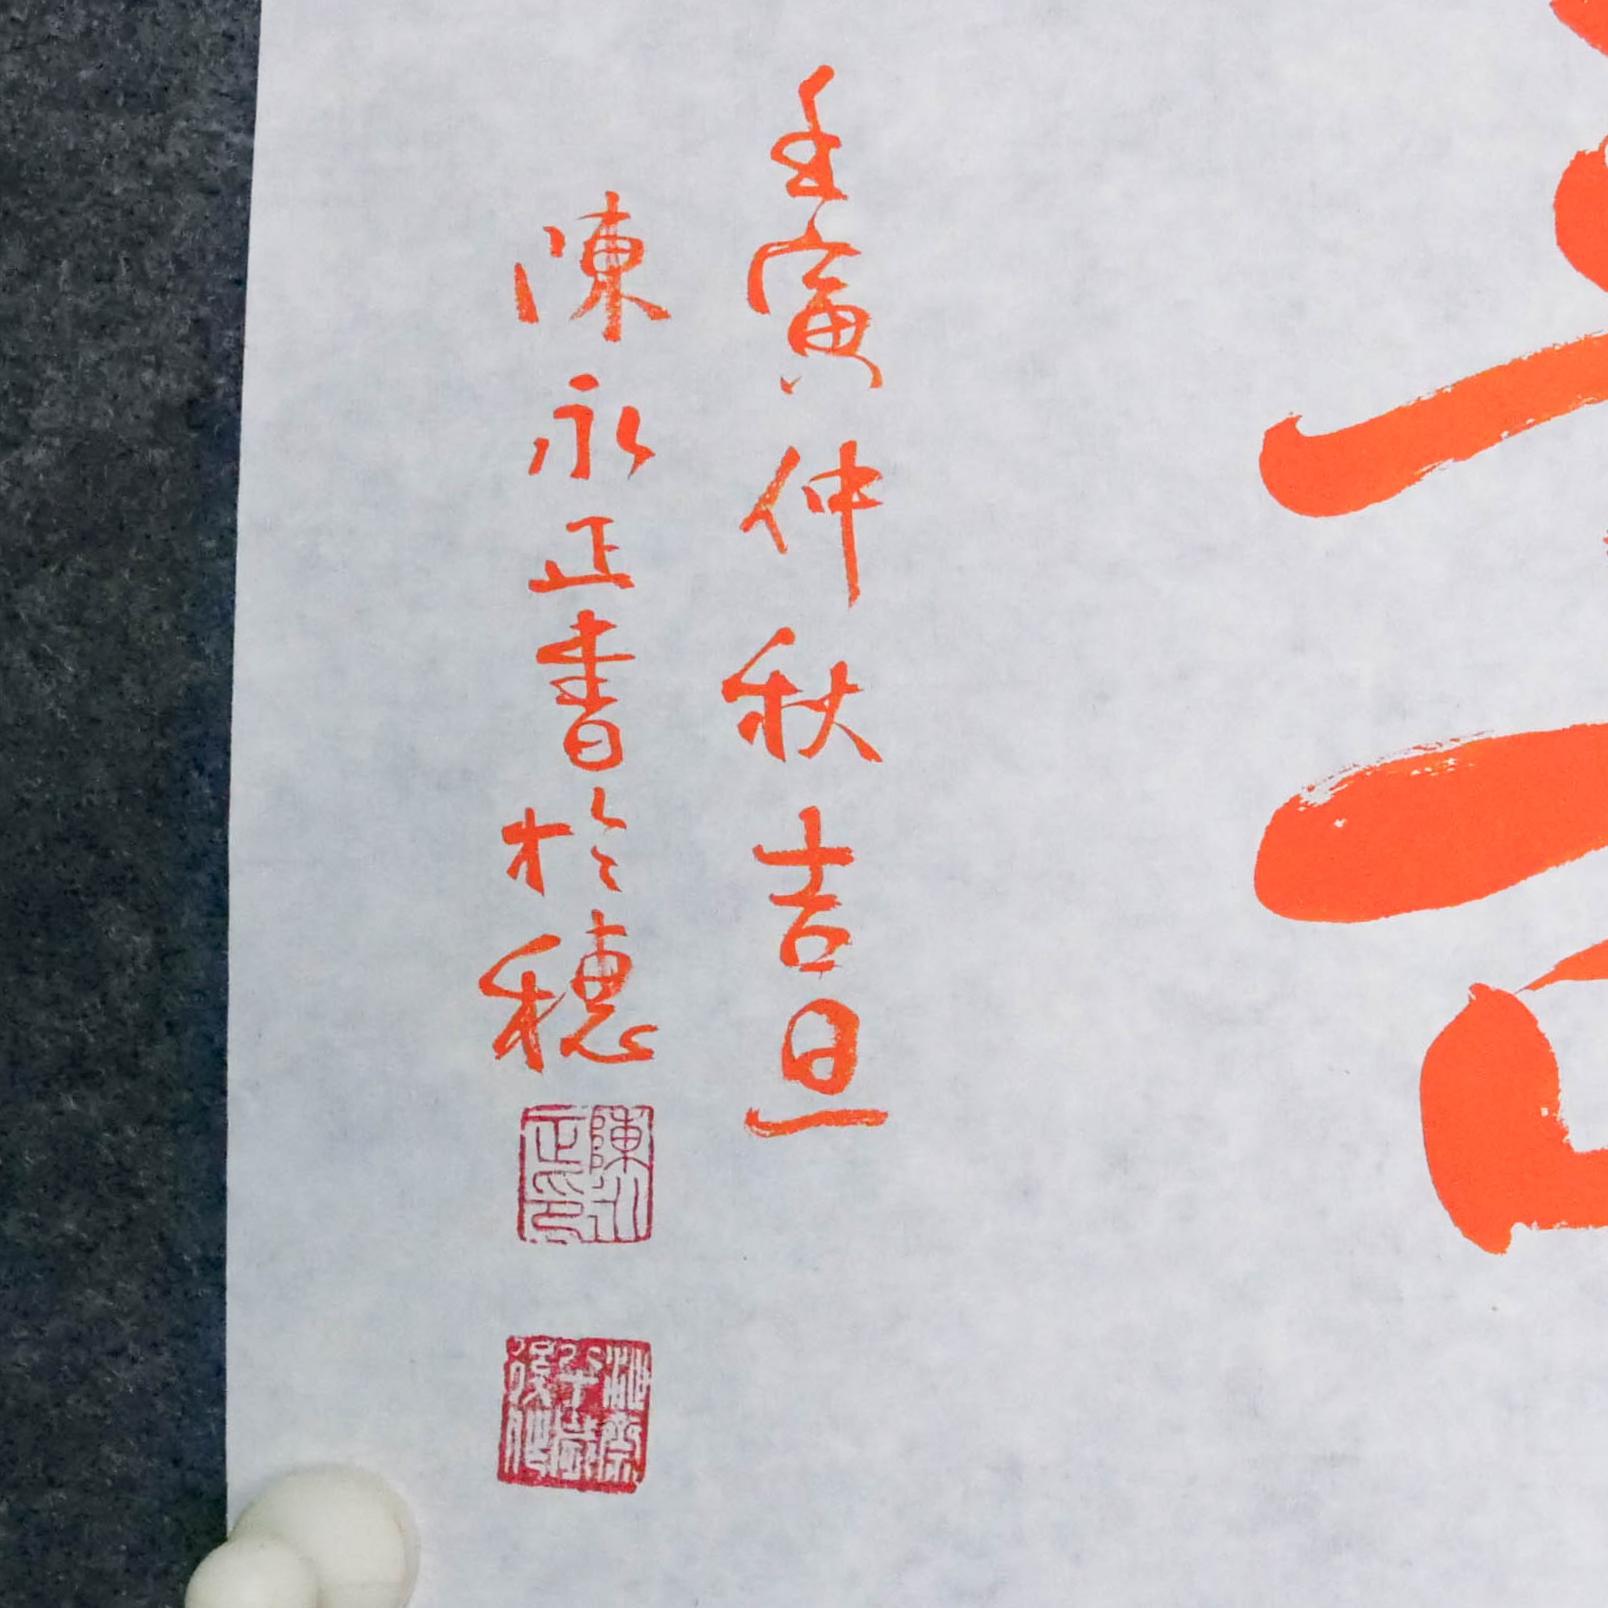 壬寅仲秋吉旦
陳永正書於穗
陳永正印